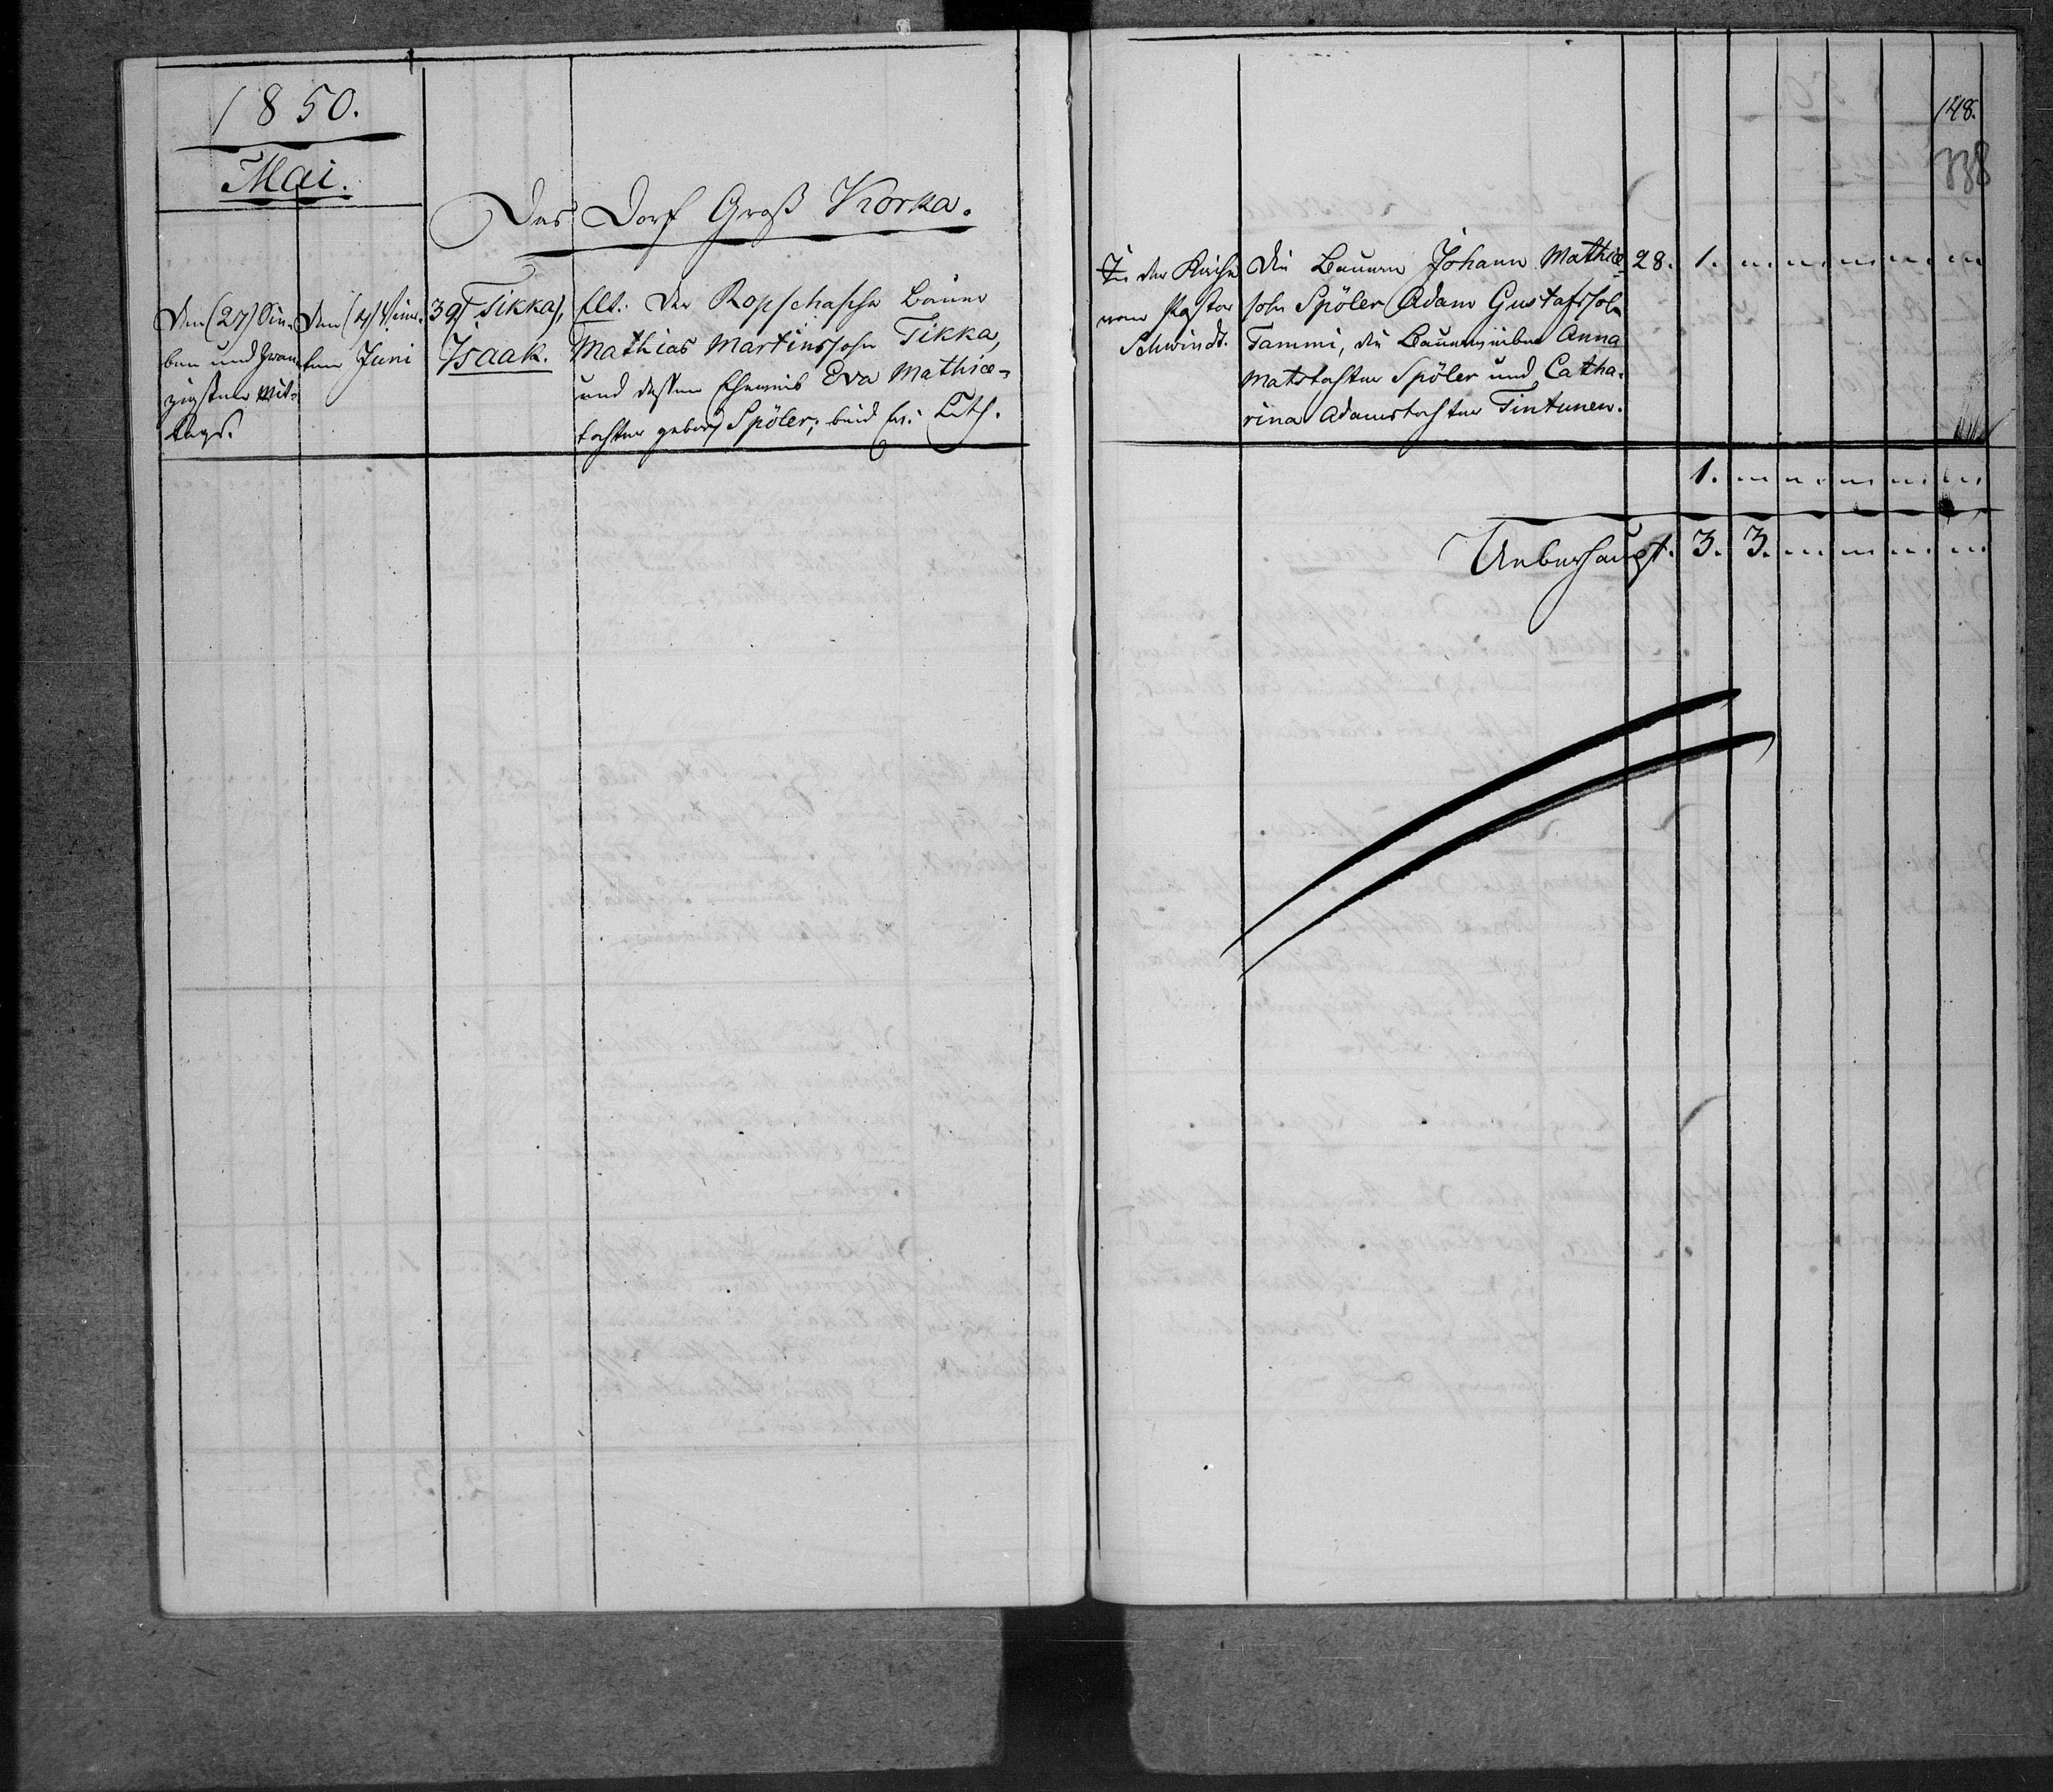 1850.
Mai.
Das Dorf Groß Korka.
Den (27) Sie-
ben und zwan-
zigsten Mit-
tags.
Den (4) Vier-
ten Juni
39) Tikka,
Isaak.
Elt: Der Ropschasche Bauer
Mathias Martinssohn Tikka,
und dessen Eheweib Eva Mathiae-
tochter gebor. Spöler; beid. ev. Luth.
148.
138
In der Kirche
vom Pastor
Schwindt.
Die Bauern Johann Mathiae-
sohn Spöler, Adam Gustafssohn
Tammi, die Bauernweiber Anna
Matstochter Spöler und Catha-
rina Adamstochter Tintunen.
28. 1.
1.
Ueberhaupt. 3. 3.